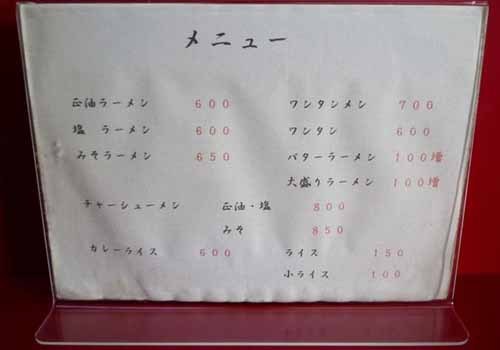 メニュー
正油ラーメン 600 ワンタンメン 700
塩 ラーメン 600 ワンタン 600
みそラーメン 650 バターラーメン 100増
大盛りラーメン 100増
チャーシューメン 正油・塩 800
みそ 850
カレーライス 600 ライス 150
小ライス 100